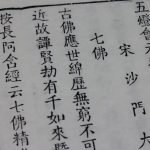 五燈會元
宋沙門大
七佛
古佛應世綿歷無窮不可
近故譚賢劫有千如來暨
按長阿含經云七佛精